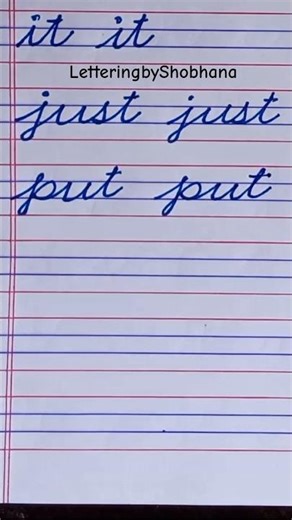 it it
LetteringbyShobhana
just just
put put